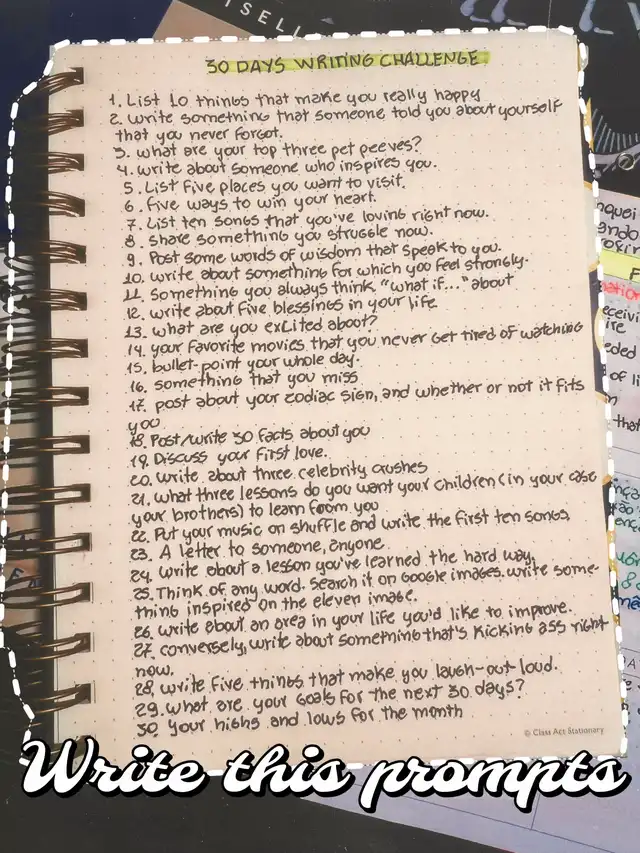 ISELL
30 DAYS WRITING CHALLENGE
1. List 10 things that make you really happy
2. write something that someone told you about yourself
that you never forgot.
3. what are your top three pet peeves?
4. write about someone who inspires you.
5. List five places you want to visit.
6. five ways to win your heart.
7. List ten songs that you've loving right now.
8. share something you struggle now.
9. Post some words of wisdom that speak to you.
10. write about something for which you feel strongly.
11. something you always think "what if..." about
12. write about five blessings in your life
13. what are you excited about?
14. your favorite movies that you never get tired of watching
15. bullet-point your whole day.
16. something that you miss
17. post about your zodiac sign, and whether or not it fits
you
18. Post/write 30 facts about you
19. Discuss your first love.
20. write about three celebrity crushes
21. what three lessons do you want your children (in your case
your brothers) to learn from you
22. Put your music on shuffle and write the first ten songs.
23. A letter to someone, anyone
24. write about a lesson you've learned the hard way.
25. Think of any word. Search it on Google images. write some-
thing inspired on the eleven image.
26. write about an area in your life you'd like to improve.
27. conversely, write about something that's kicking ass right
now.
28. write five things that make you laugh-out loud.
29. what are your goals for the next 30 days?
30 your highs and lows for the month
© Class Act Stationary
Write this prompts